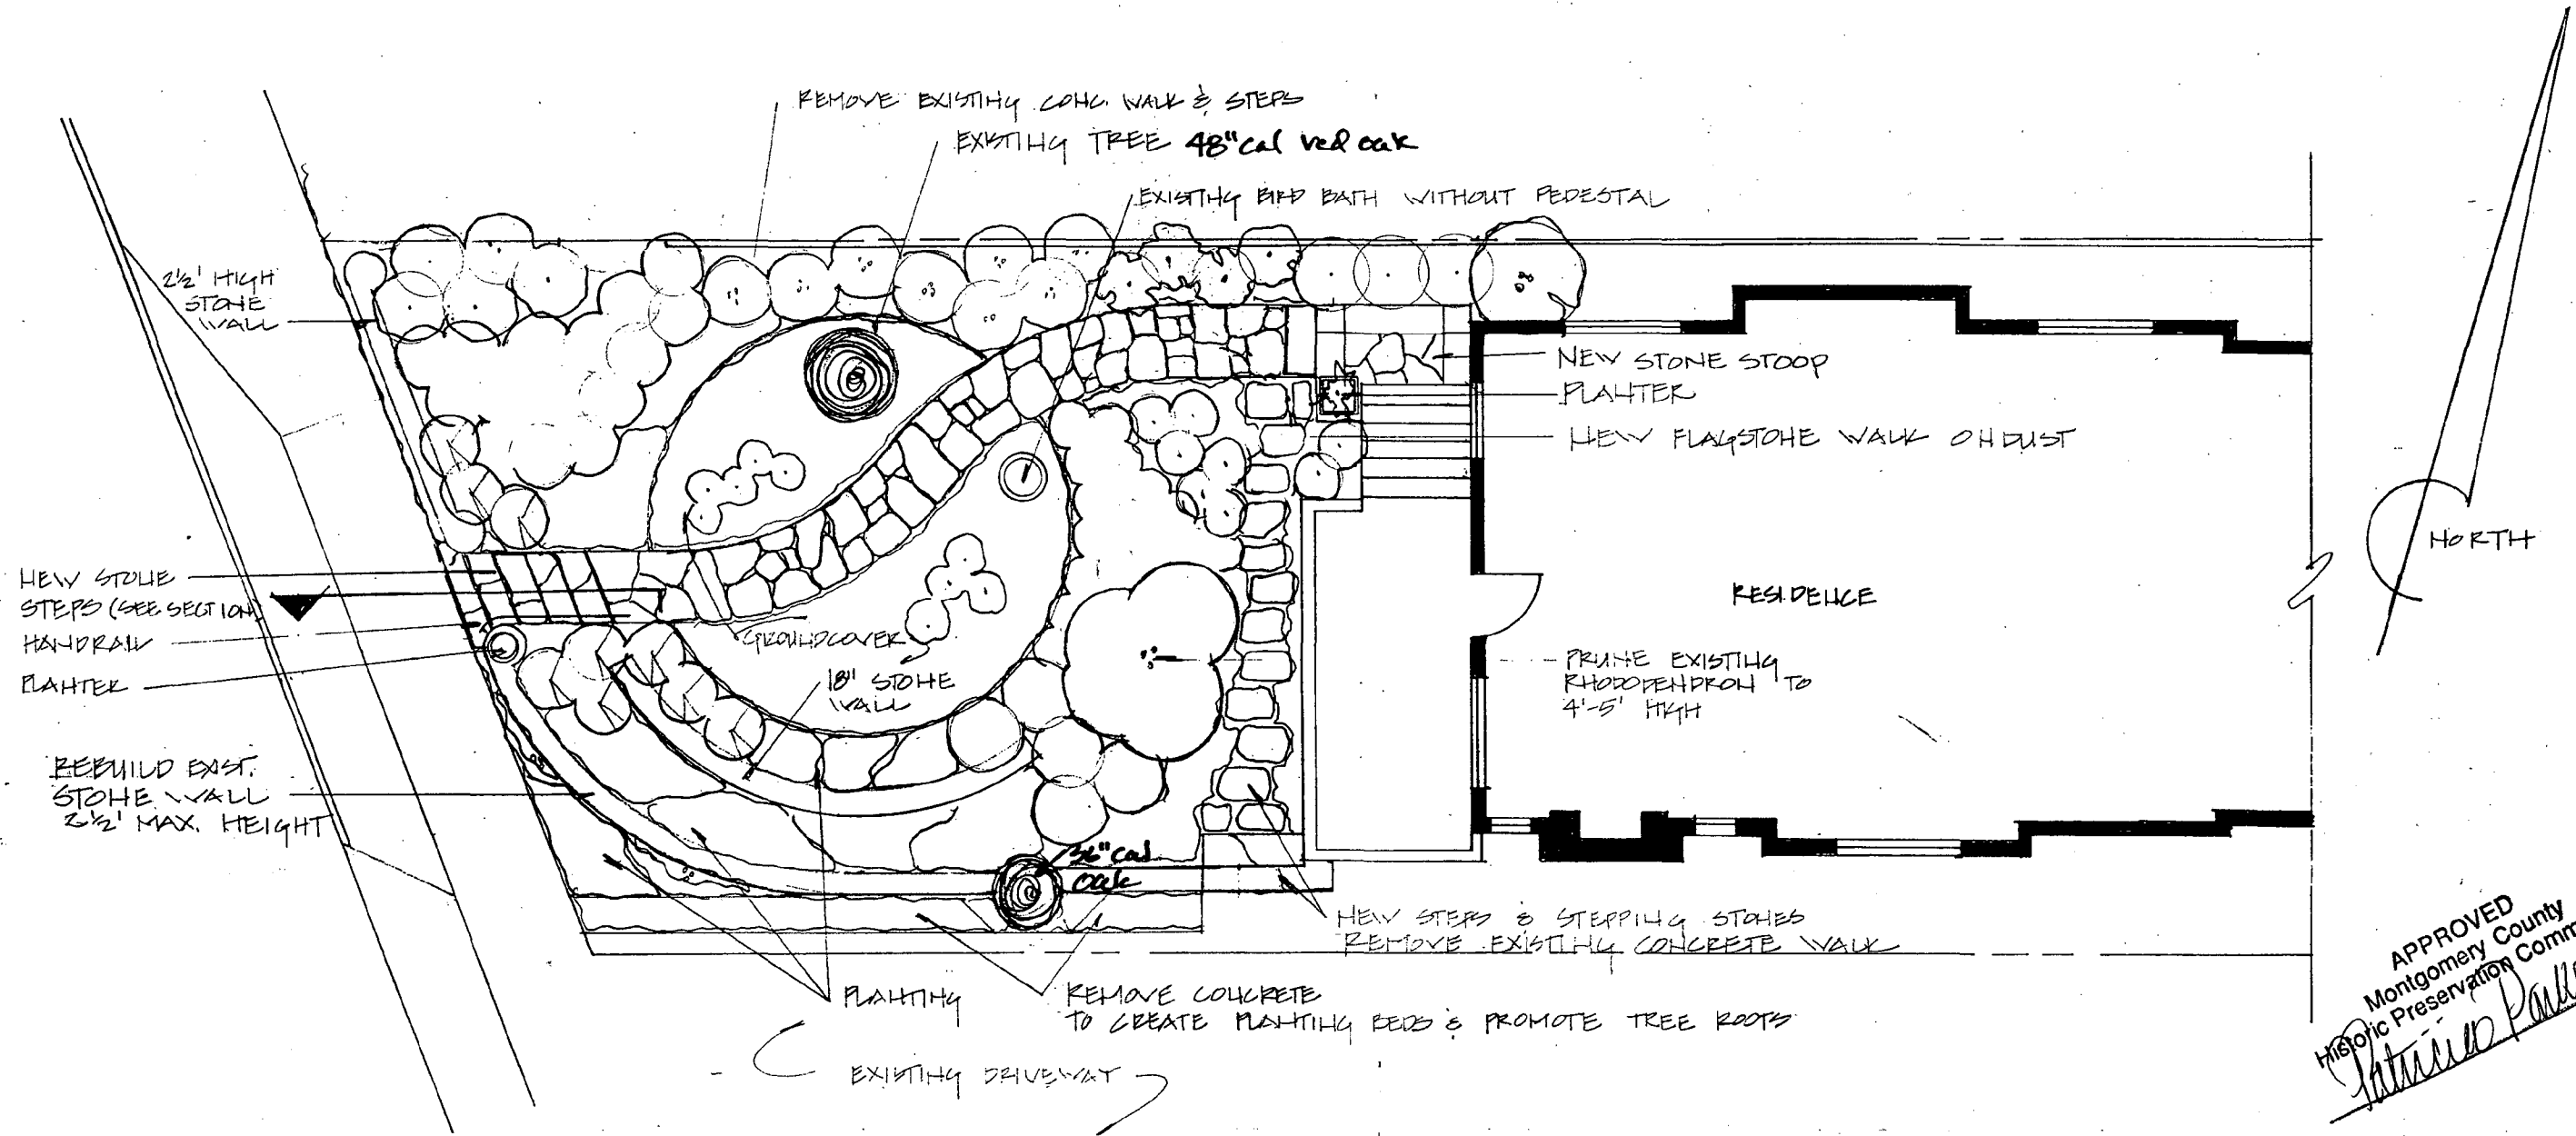 REMOVE EXISTING CONC. WALK & STEPS
EXISTING TREE 48"cal red oak
EXISTING BIRD BATH WITHOUT PEDESTAL
2½' HIGH
STONE
WALL
NEW STONE STOOP
PLANTER
NEW FLAGSTONE WALK ON DUST
NORTH
NEW STONE
STEPS (SEE SECTION)
HANDRAIL
PLANTER
RESIDENCE
GROUNDCOVER
18" STONE
WALL
PRUNE EXISTING
RHODODENDRON TO
4'-5' HIGH
REBUILD EXIST.
STONE WALL
2½' MAX. HEIGHT
36" cal
oak
NEW STEPS & STEPPING STONES
REMOVE EXISTING CONCRETE WALK
PLANTING
REMOVE CONCRETE
TO CREATE PLANTING BEDS & PROMOTE TREE ROOTS
EXISTING DRIVEWAY
APPROVED
Montgomery County
Historic Preservation Comm
Patricia